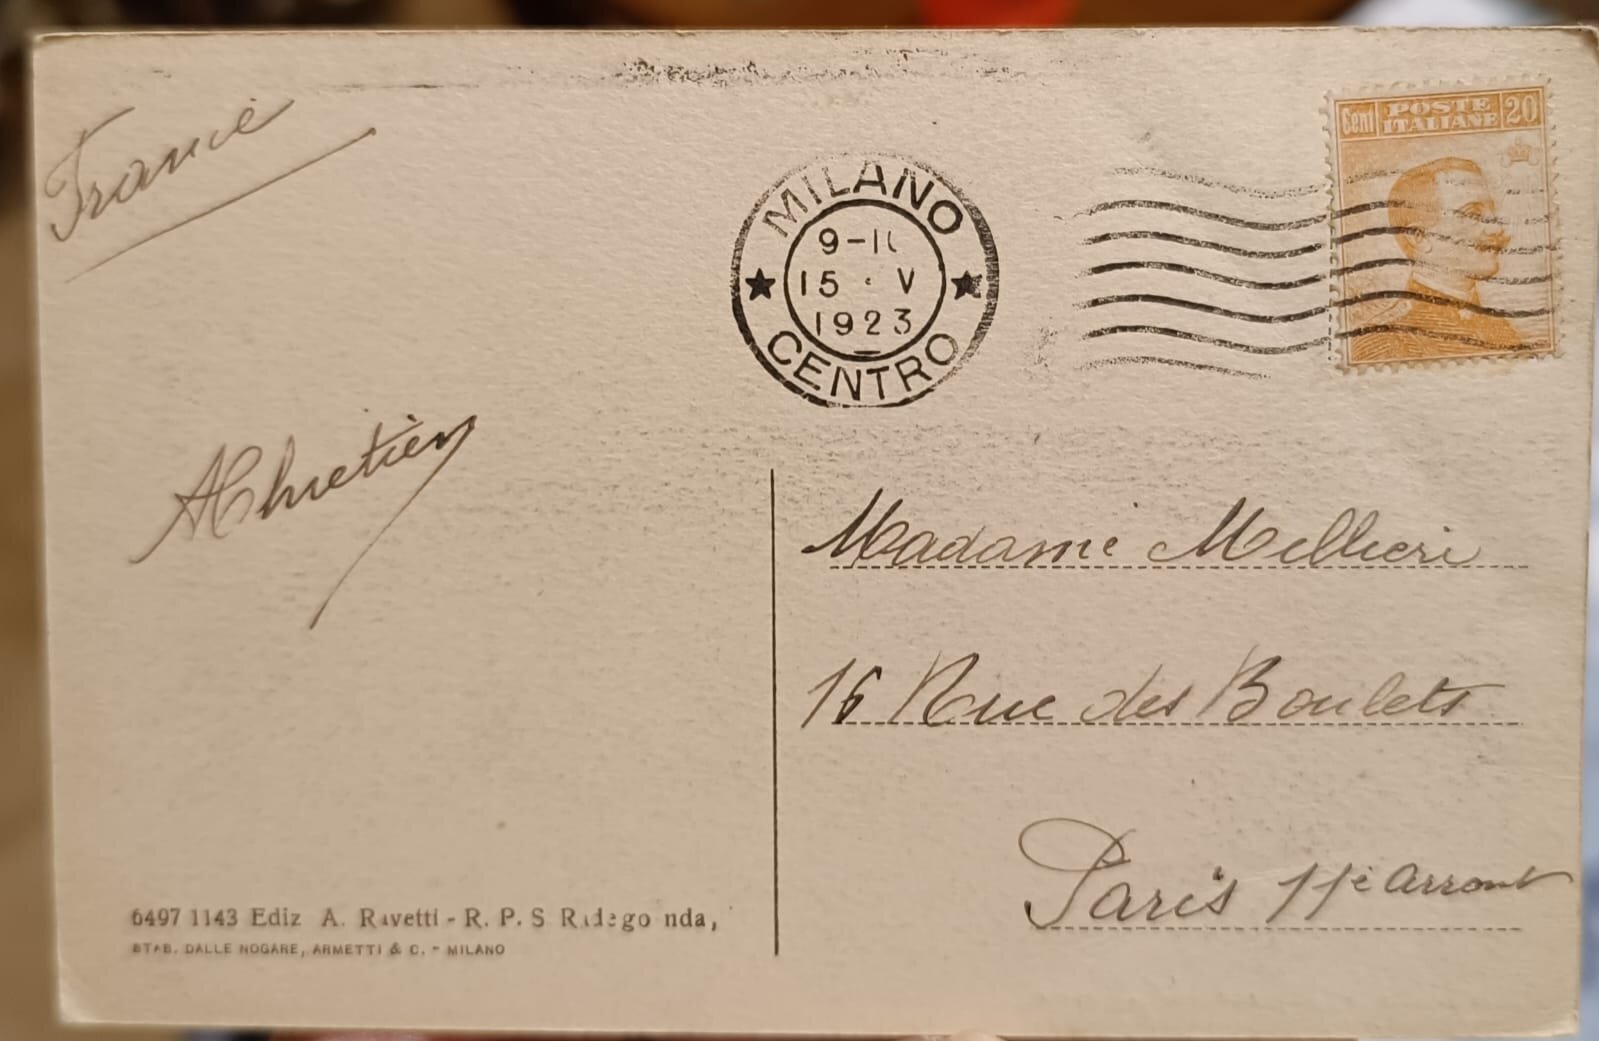 France
Cent POSTE ITALIANE 20
MILANO
9-1
15 · V
1923
CENTRO
AChretien
Madame Mellieri
16 Rue des Boulets
Paris 11e Arront
6497 1143 Ediz A. Ravetti - R. P. S
STAB. DALLE NOGARE, ARMETTI & C. - MILANO